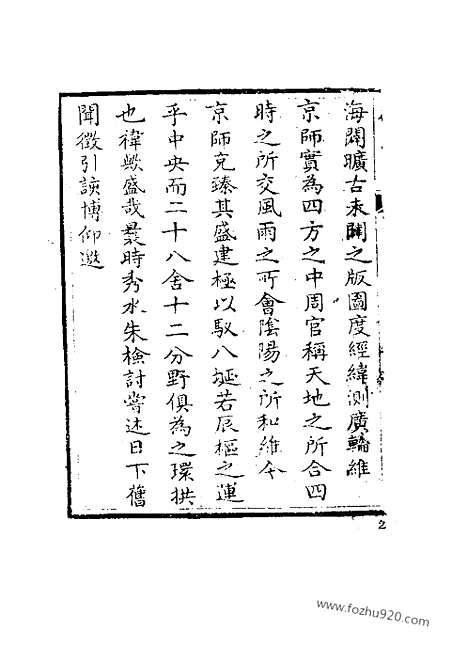 海闢曠古未闢之版圖度經緯測廣輪維
京師實為四方之中周官稱天地之所合四
時之所交風雨之所會陰陽之所和維今
京師克臻其盛建極以馭八埏若辰樞之運
乎中央而二十八舍十二分野俱為之環拱
也禕歟盛哉曩時秀水朱檢討嘗述日下舊
聞徵引該博仰邀
2
www.fozhu920.com